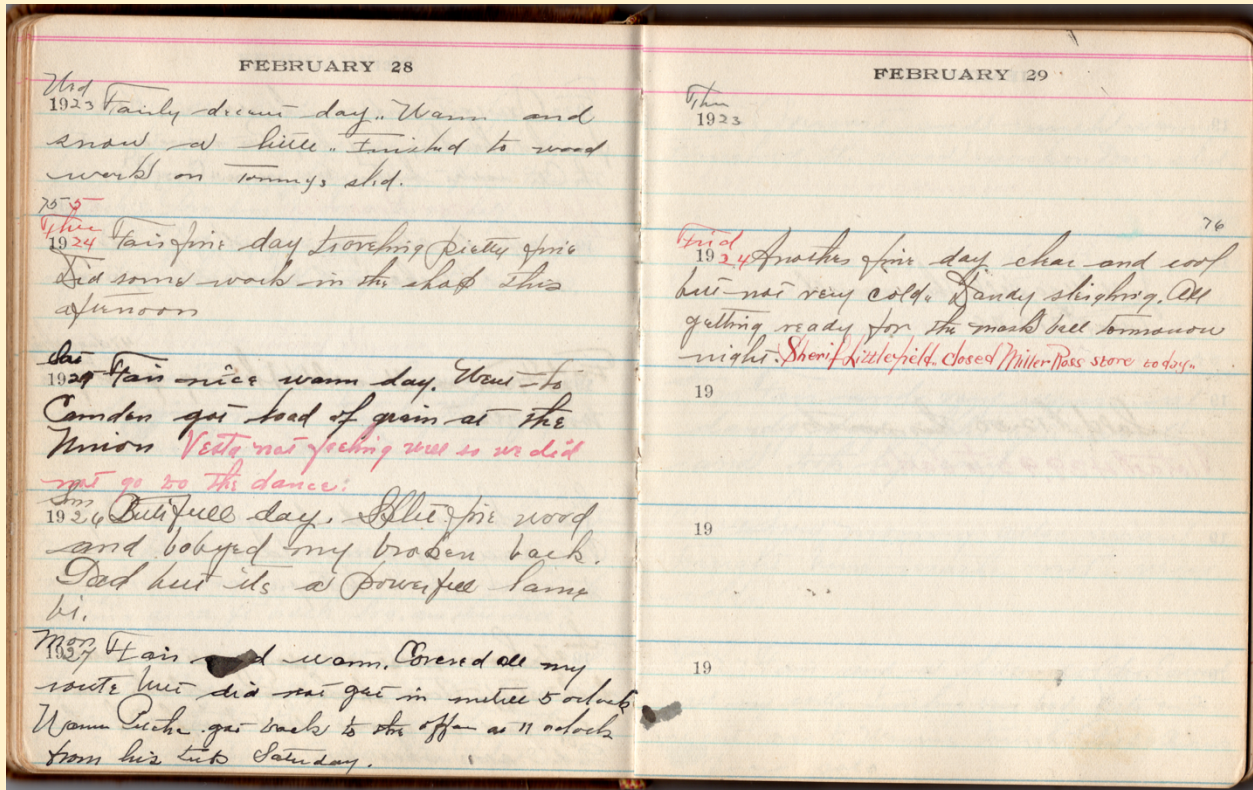 FEBRUARY 28
Wed
1923 Fairly decent day.. Warm and
snow a little.. Finished to wood
work on Tommys sled.
75 5
Thur
1924 Fair fine day traveling pretty fine
Did some work in the shop this
afternoon
Sat
1925 Fair nice warm day. Went to
Camden got load of grain at the
Union Vesta not feeling well so we did
not go to the dance.
Sun
1926 Butifull day. Split fire wood
and bobyed my broken back.
Dad but its a powerfull lame
bi.
Mon
1927 Fair and warm. Covered all my
route but did not get in untill 5 oclock
Warren got back to the office at 11 oclock
from his Saturday.
FEBRUARY 29
Thu
1923
76
Frid
1924 Another fine day clear and cool
but not very cold.. Dandy sleighing. All
getting ready for the mask ball tommorow
night. Sherif Littlefield.. closed Miller Ross store today..
19
19
19